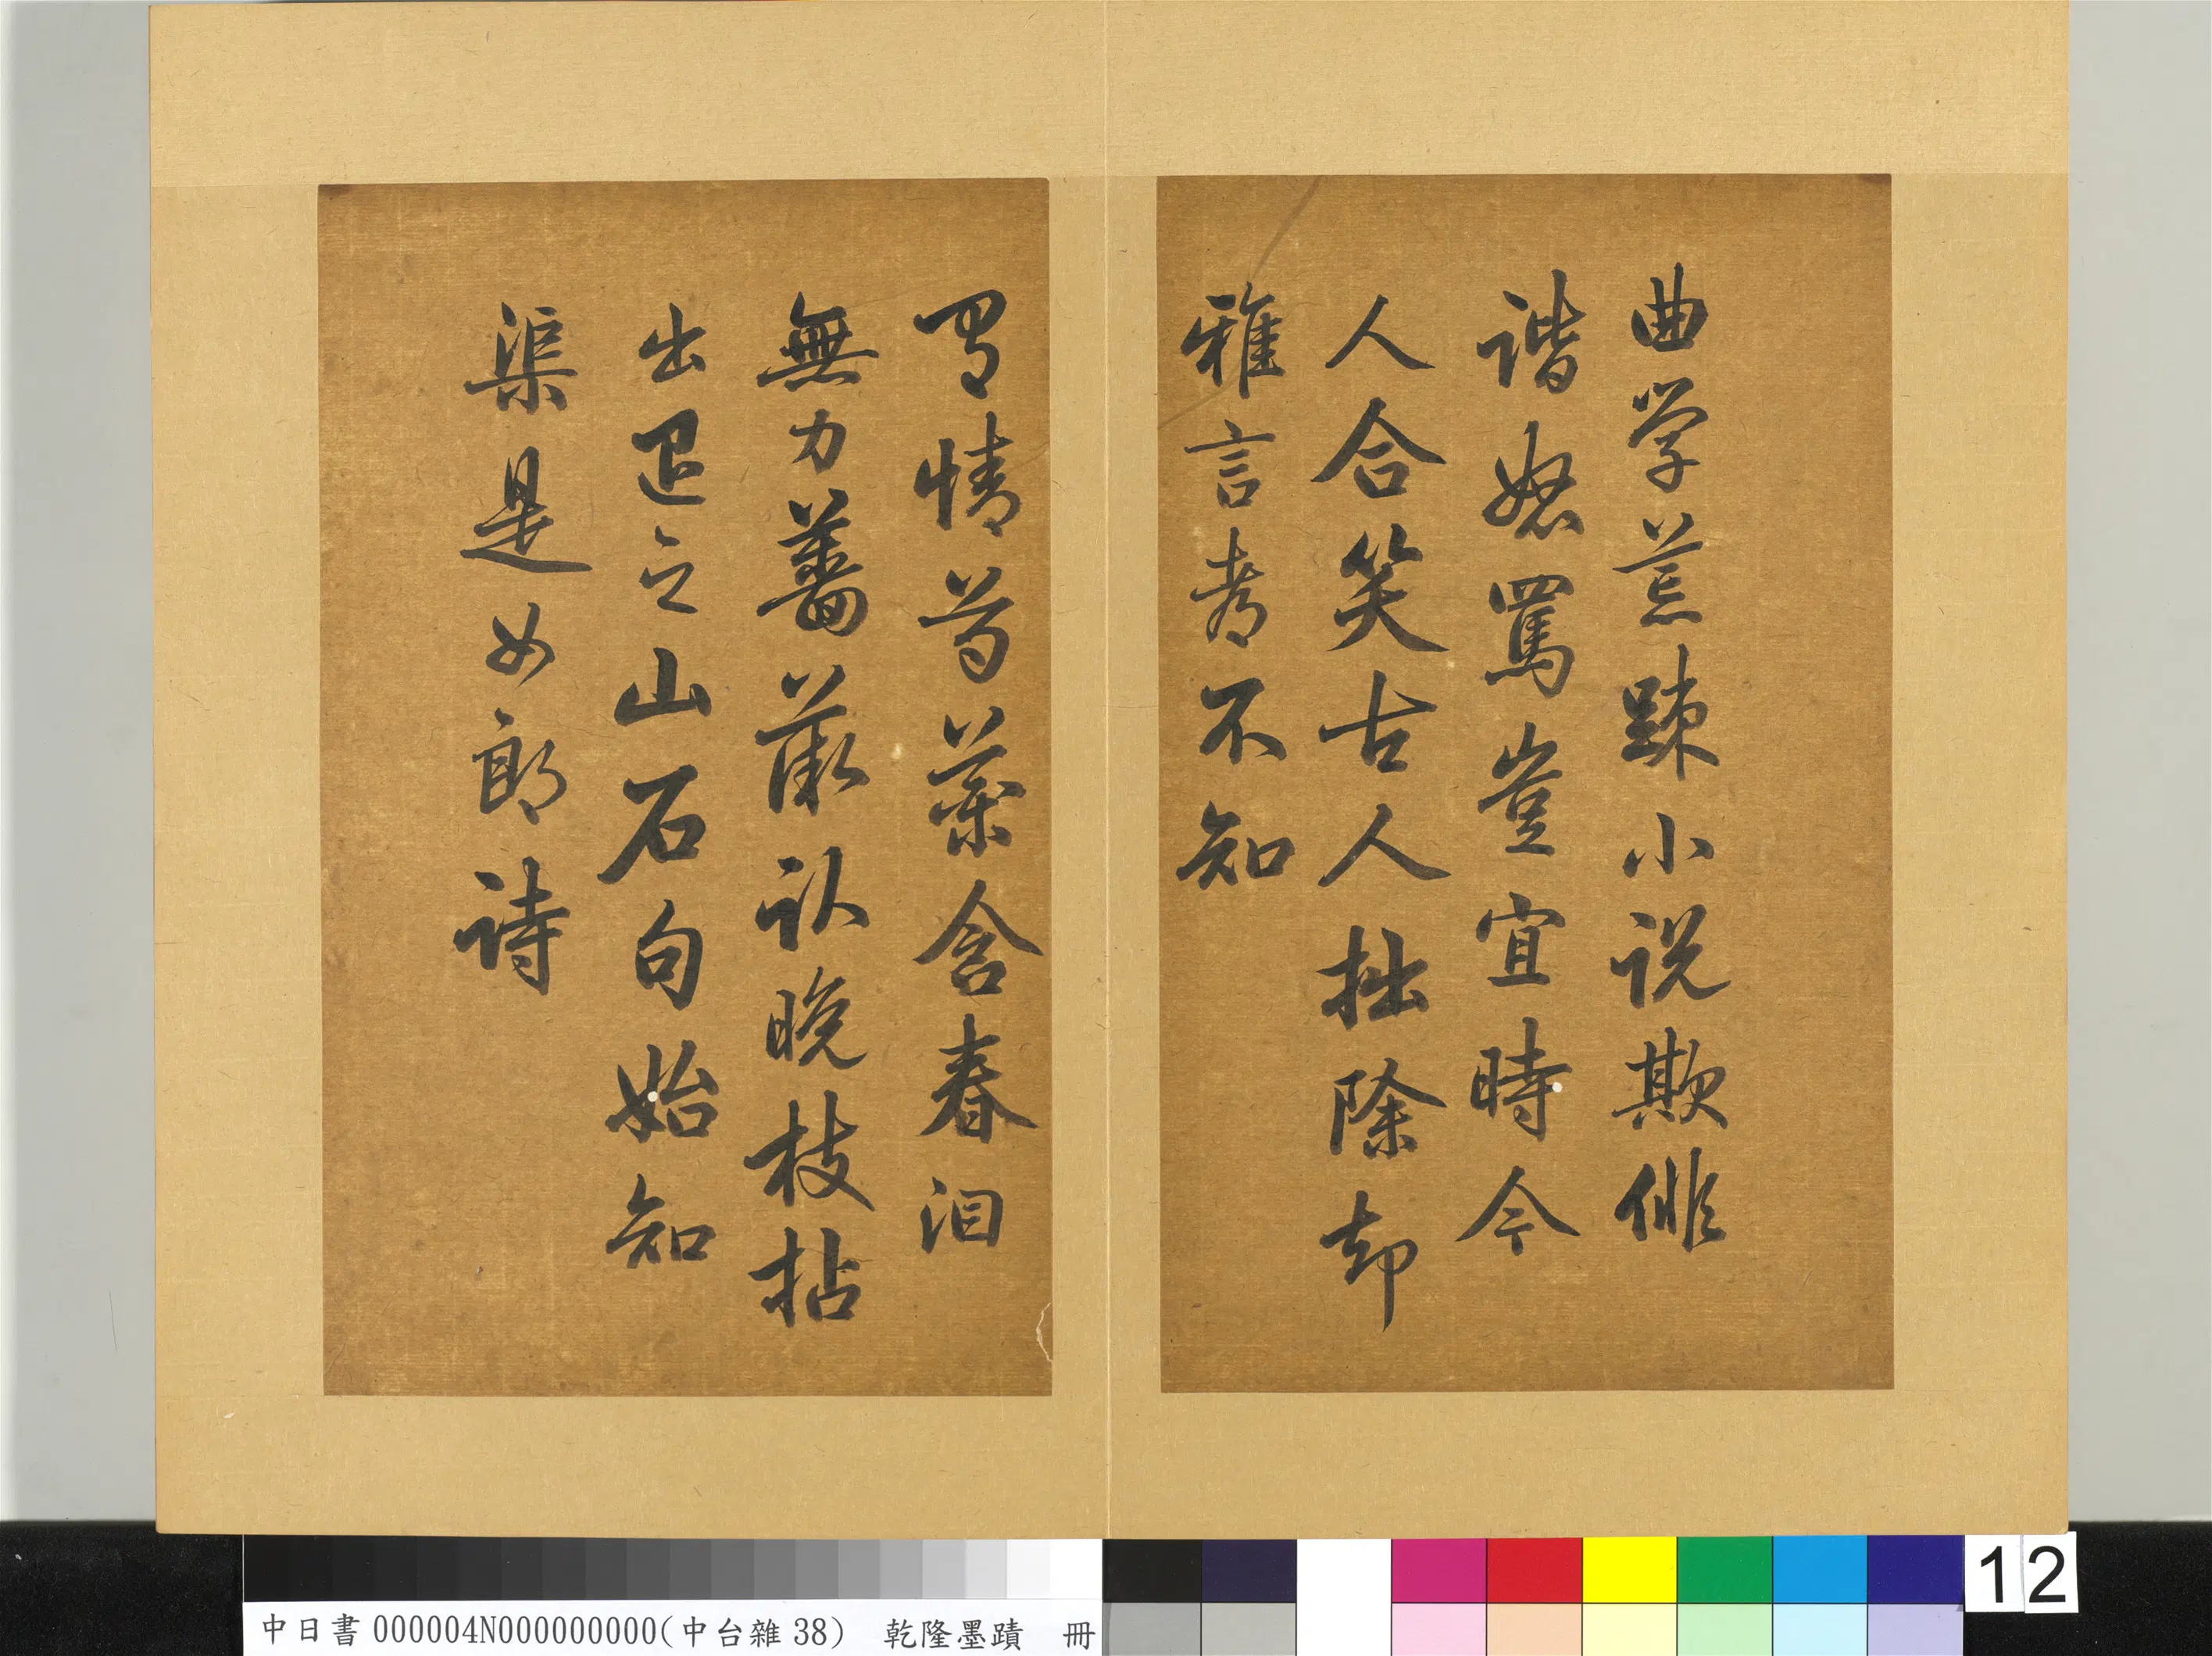 曲学荒踈小说欺俳
谐怒罵豈宜時今
人合笑古人拙除却
雅言都不知
情芍藥含春泪
無力薔薇卧晚枝拈
出退之山石句始知
渠是女郎诗
中日書000004N000000000(中台雜38) 乾隆墨蹟 冊
12